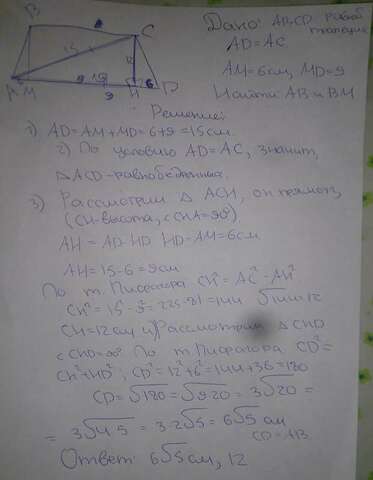 B
C
15
12
9
15
9
6
A M
H
D
Дано: ABCD равноб
трапеция
AD=AC
AM=6см, MD=9
Найти: AB и BM
Решение:
1) AD=AM+MD=6+9=15см.
2) По условию AD=AC, значит,
△ACD-равнобедренный.
3) Рассмотрим △ ACH, он прямоуг,
(CH-высота, <CHA=90°)
AH = AD-HD HD=AM=6см
AH=15-6=9см
По т. Пифагора CH²=AC²-AH²
CH²=15²-9²=225-81=144 √144=12
CH=12см и) Рассмотрим △CHD
<CHD=90° По т. Пифагора CD²=
CH²+HD²; CD²=12²+6²=144+36=180
CD=√180=√9·20=3√20=
=3√4·5=3·2√5=6√5 см
CD=AB
Ответ: 6√5см, 12